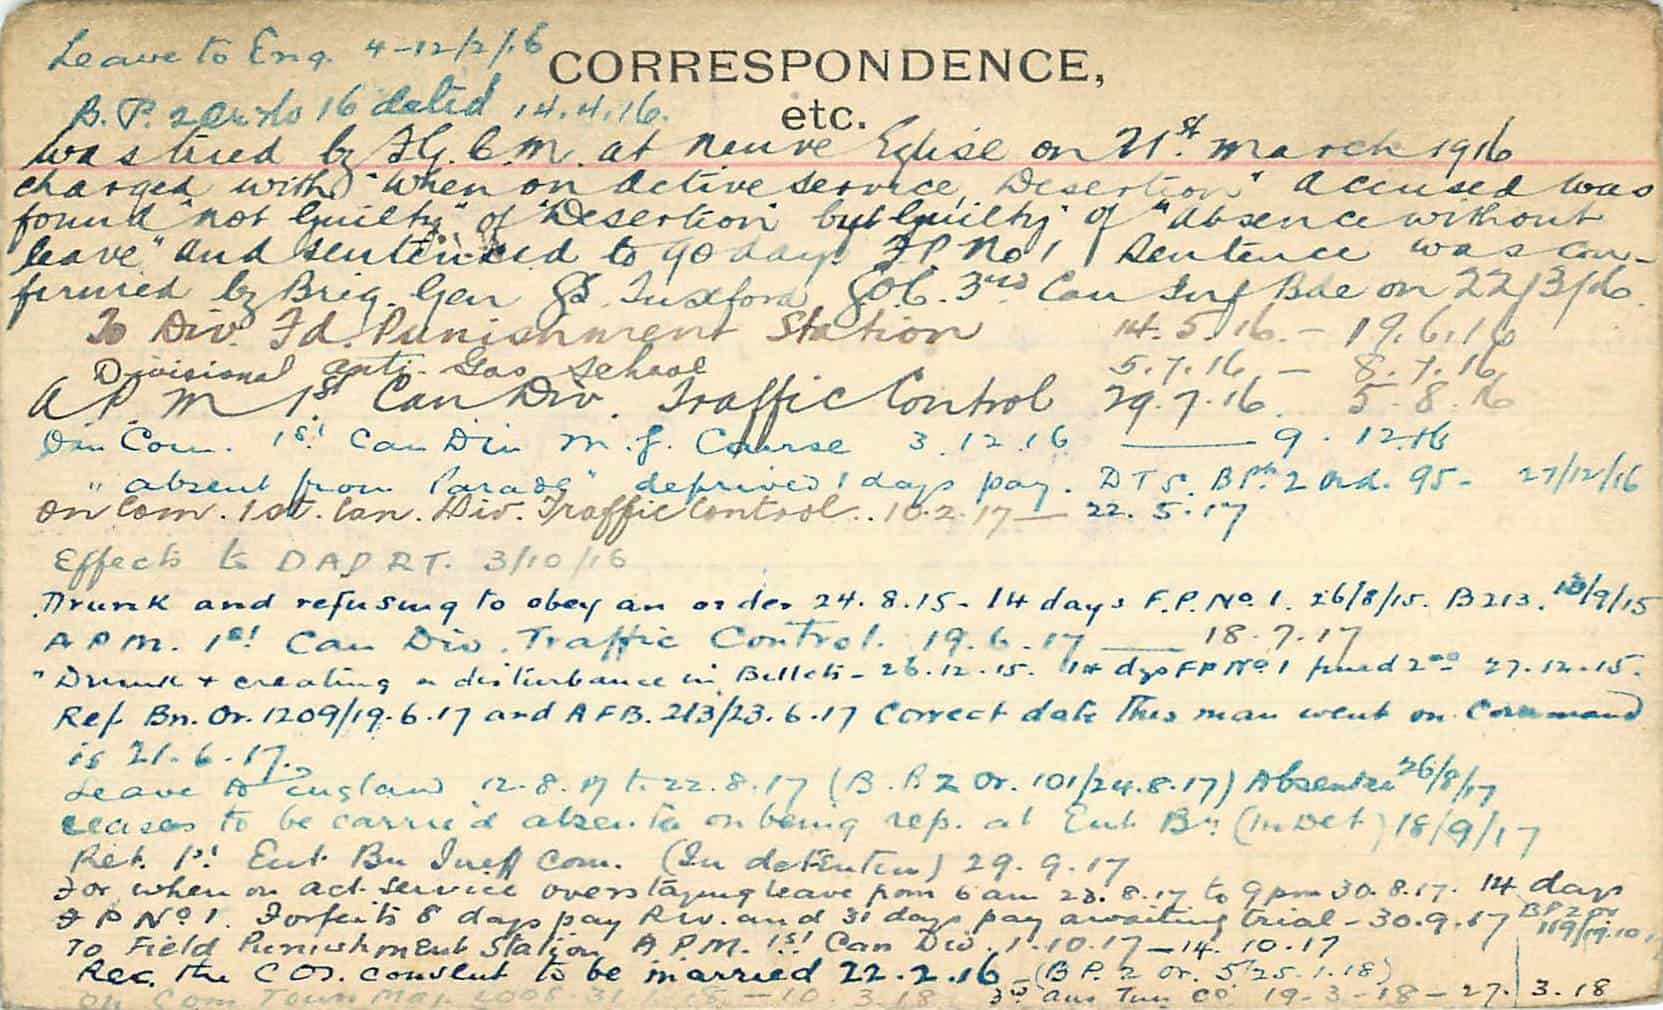 Leave to Eng. 4-12/2/16
CORRESPONDENCE,
etc.
B.P. 2 Or No 16 dated 14.4.16.
was tried by F.G.C.M. at Neuve Eglise on 21st March 1916
charged with "When on Active Service, Desertion" Accused was
found "not Guilty" of "Desertion" but "Guilty" of "absence without
leave" and sentenced to 90 days F P No 1 Sentence was con-
firmed by Brig. Gen GS. Tuxford, G.O.C. 3rd Can Inf Bde on 22/3/16.
To Div. Fd. Punishment Station 14.5.16. - 19.6.16
Divisional anti-Gas School 5.7.16. - 8.7.16
A.P.M 1st Can Div. Traffic Control 29.7.16. 5.8.16
On Com. 1st Can Div M.G. Course 3.12.16 — 9.12.16
"absent from Parade" deprived 1 days pay. BPt 2 Ord. 95 - 27/12/16
On Com. 1st. Can. Div. Traffic Control.. 10.2.17 — 22.5.17
Effects to DADRT. 3/10/16
Drunk and refusing to obey an order 24.8.15 - 14 days F.P. No. 1. 26/8/15. B213. /9/15
A P M. 1st Can Div. Traffic Control. 19.6.17 — 18.7.17
"Drunk & creating a disturbance in Billets - 26.12.15. 14 dys FP No 1 27.12.15.
Ref Bn. Or. 1209/19.6.17 and AFB. 213/23.6.17 Correct date this man went on Command
is 21.6.17.
Leave to England 12.8.17 to 22.8.17 (B.P. 2 Or. 101/24.8.17) Absentee 26/8/17
ceases to be carried absentee on being rep. at Ent Bn (In Det) 18/9/17
Ret. 1st Ent. Bn Ineff Com. (In detention) 29.9.17
For when on act. service overstaying leave from 6 am 23.8.17 to 9 pm 30.8.17. 14 days
F P No 1. Forfeits 8 days pay R.W. and 31 days pay awaiting trial - 30.9.17 BP 2 Or
To Field Punishment Station A.P.M. 1st Can Div. 1.10.17 - 14.10.17
Rec. the C.O's. consent to be married 22.2.16 (B P. 2 Or. 5/25.1.18)
On Com Town Maj. - 10.3.18 3rd Aus Tun Co. 19-3-18 - 27.3.18